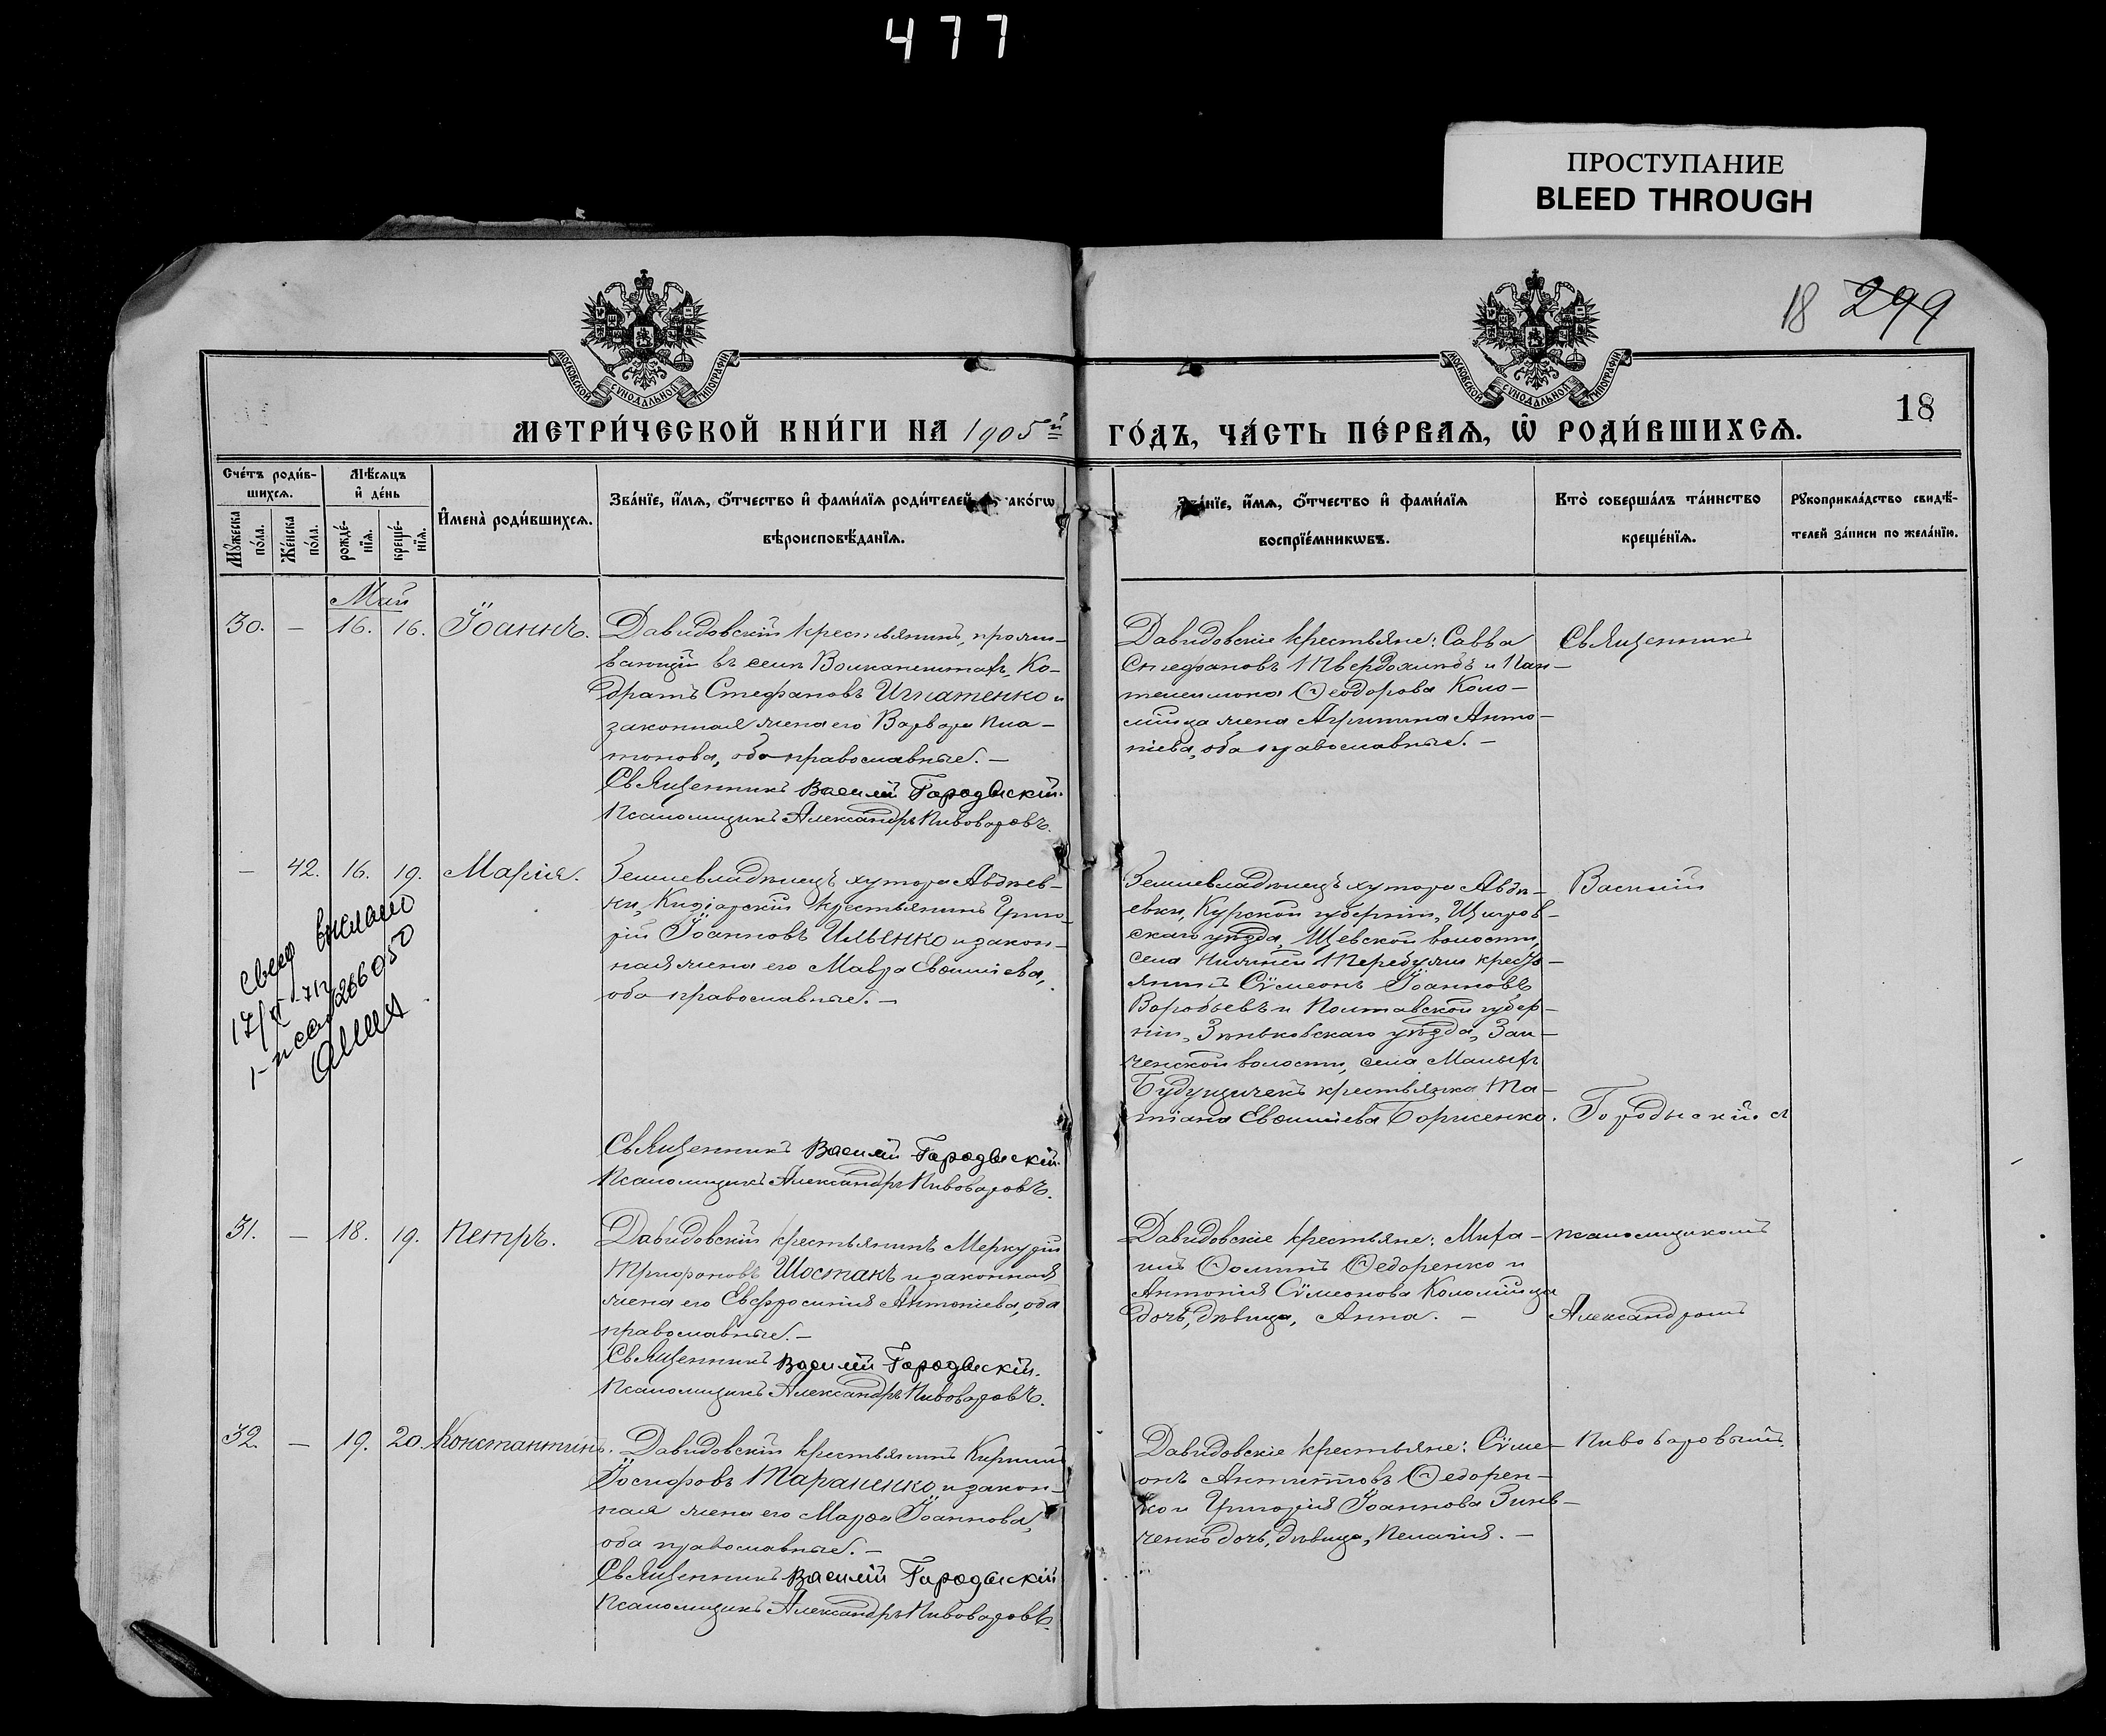 477
ПРОСТУПАНИЕ
BLEED THROUGH
18 299
МОСКОВСКОЙ СУНОДАЛЬНОЙ ТИПОГРАФІИ
МОСКОВСКОЙ СУНОДАЛЬНОЙ ТИПОГРАФІИ
18
МЕТРИ́ЧЕСКОЙ КНИ́ГИ НА 1905й ГО́ДЪ, ЧА́СТЬ ПЕ́РВАѦ, Ѡ РОДИ́ВШИХСѦ.
Счетъ родившихсѧ.
Мѣсѧцъ и день
Имена родившихсѧ.
Званїе, имѧ, отчество и фамилїѧ родителей, акогѡ
вѣроисповѣданїѧ.
Званїе, имѧ, отчество и фамилїѧ
воспрїемникѡвъ.
Кто совершалъ таинство
крещенїѧ.
Рꙋкоприкладство свидѣ-
телей записи по желанїю.
Мꙋжеска пола.
Женска пола.
рожде-нїѧ.
креще-нїѧ.
Май
30. – 16. 16. Іоаннъ.
Давидовскій крестьянинъ, прожи-
вающій въ селѣ Ко-
дратъ Стефановъ Игнатенко и
законная жена его Варвара Пла-
тонова, оба православные. –
Священникъ Василій Городыскій.
Псаломщикъ Александръ Пивоваровъ.
Давидовскіе крестьяне: Савва
Стефановъ Твердохлѣбъ и Пан-
телеимона Ѳеодорова Коло-
мійца жена Агрипина Анто-
ніева, оба православные. –
Священникъ
– 42. 16. 19. Марія.
Землевладѣлецъ хутора Авдѣев-
ки, крестьянинъ Григо-
рій Іоанновъ Ильенко и закон-
ная жена его Мавра Евѳиміева,
оба православные. –
Священникъ Василій Городыскій.
Псаломщикъ Александръ Пивоваровъ.
Землевладѣлецъ хутора Авдѣ-
евки, Курской губерніи, Щигров-
скаго уѣзда, волости,
села Нижней кресть-
янинъ Сѵмеонъ Іоанновъ
Воробьевъ и Полтавской губер-
ніи, Зѣньковскаго уѣзда,
волости, села Малыхъ
Будищечекъ крестьянка Та-
тіана Евѳиміева Борисенко.
Василій
Городыскій съ
17/
31. – 18. 19. Петръ.
Давидовскій крестьянинъ Меркурій
Трифоновъ Шостакъ и законная
жена его Евфросинія Антоніева, оба
православные. –
Священникъ Василій Городыскій.
Псаломщикъ Александръ Пивоваровъ.
Давидовскіе крестьяне: Миха-
илъ Ѳоминъ Ѳедоренко и
Антонія Сѵмеонова Коломійца
дочь, дѣвица, Анна. –
псаломщикомъ
Александромъ
32. – 19. 20. Константинъ.
Давидовскій крестьянинъ Кириллъ
Іосифовъ Тараненко и закон-
ная жена его Марѳа Іоаннова,
оба православные. –
Священникъ Василій Городыскій
Псаломщикъ Александръ Пивоваровъ.
Давидовскіе крестьяне: Сѵме-
онъ Антиповъ Ѳедорен-
ко и Григорія Іоаннова Зинь-
ченко дочь, дѣвица, Пелагія. –
Пивоваровымъ.